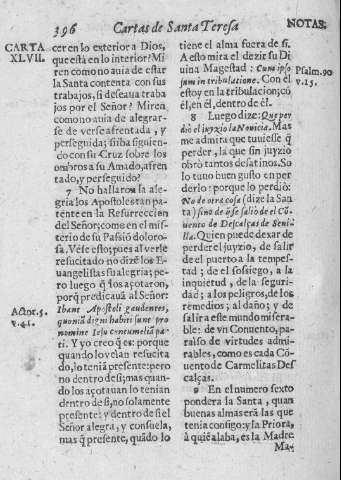 396 Cartas de Santa Teresa NOTAS.
CARTA
XLVII.
cer en lo exterior a Dios,
que està en lo interior? Mi
ren como no auia de estar
la Santa contenta con sus
trabajos, si deseaua traba
jos por el Señor? Miren,
como no auia de alegrar-
se de verse afrentada, y
perseguida; si iba siguien-
do con su Cruz sobre los
ombros a su Amado, afren
tado, y perseguido?
7 No hallarou la ale-
gria los Apostoles tan pa
tente en la Resurreccion
del Señor; como en el mis-
terio de su Passiõ doloro-
sa. Vese esto; pues al verle
resucitado no dizẽ los E-
uangelistas su alegria; pe-
ro luego q̃ los açotaron,
porq̃ predicauã al Señor:
Actor. 5.
v. 41.
Ibant Apostoli gaudentes,
quoniã digni habiti sunt pro
nomine Iesu contumeliã pa-
ti. Y yo creo q̃ es: porque
quando lo veìan resucita
do, lo teniã presente: pero
no dentro de si; mas quan-
do los açotauan lo tenian
dentro de si, no solamente
presente: y dentro de si el
Señor alegra, y consuela,
mas q̃ presente, quãdo lo
tiene el alma fuera de si.
A esto mira el dezir su Di
uina Magestad: Cum ipso
sum in tribulatione. Con èl
estoy en la tribulacion; cõ
èl, en èl, dentro de èl.
Psalm. 90
v. 15.
8 Luego dize: Que per
diò el juyzio la Nouicia. Mas
me admira que tuuiesse q̃
perder, la que sin juyzio
obrò tantos desatinos. So-
lo tuuo buen gusto en per
derlo: porque lo perdiò:
No de otra cosa (dize la San
ta) sino de q̃ se saliò de el Cõ
uento de Descalças de Seui-
lla. Quien puede dexar de
perder el juyzio, de salir
de el puerto a la tempes-
tad; de el sossiego, a la
inquietud, de la seguri-
dad; a los peligros, de los
remedios; al daño; y de
salir a este mundo misera-
ble: de vn Conuento, pa-
raìso de virtudes admi-
rables, como es cada Cõ-
uento de Carmelitas Des
calças.
9 En el numero sexto
pondera la Santa, quan
buenas almas erá las que
tenia consigo: y la Priora,
à quiẽ alaba, es la Madre
Ma-